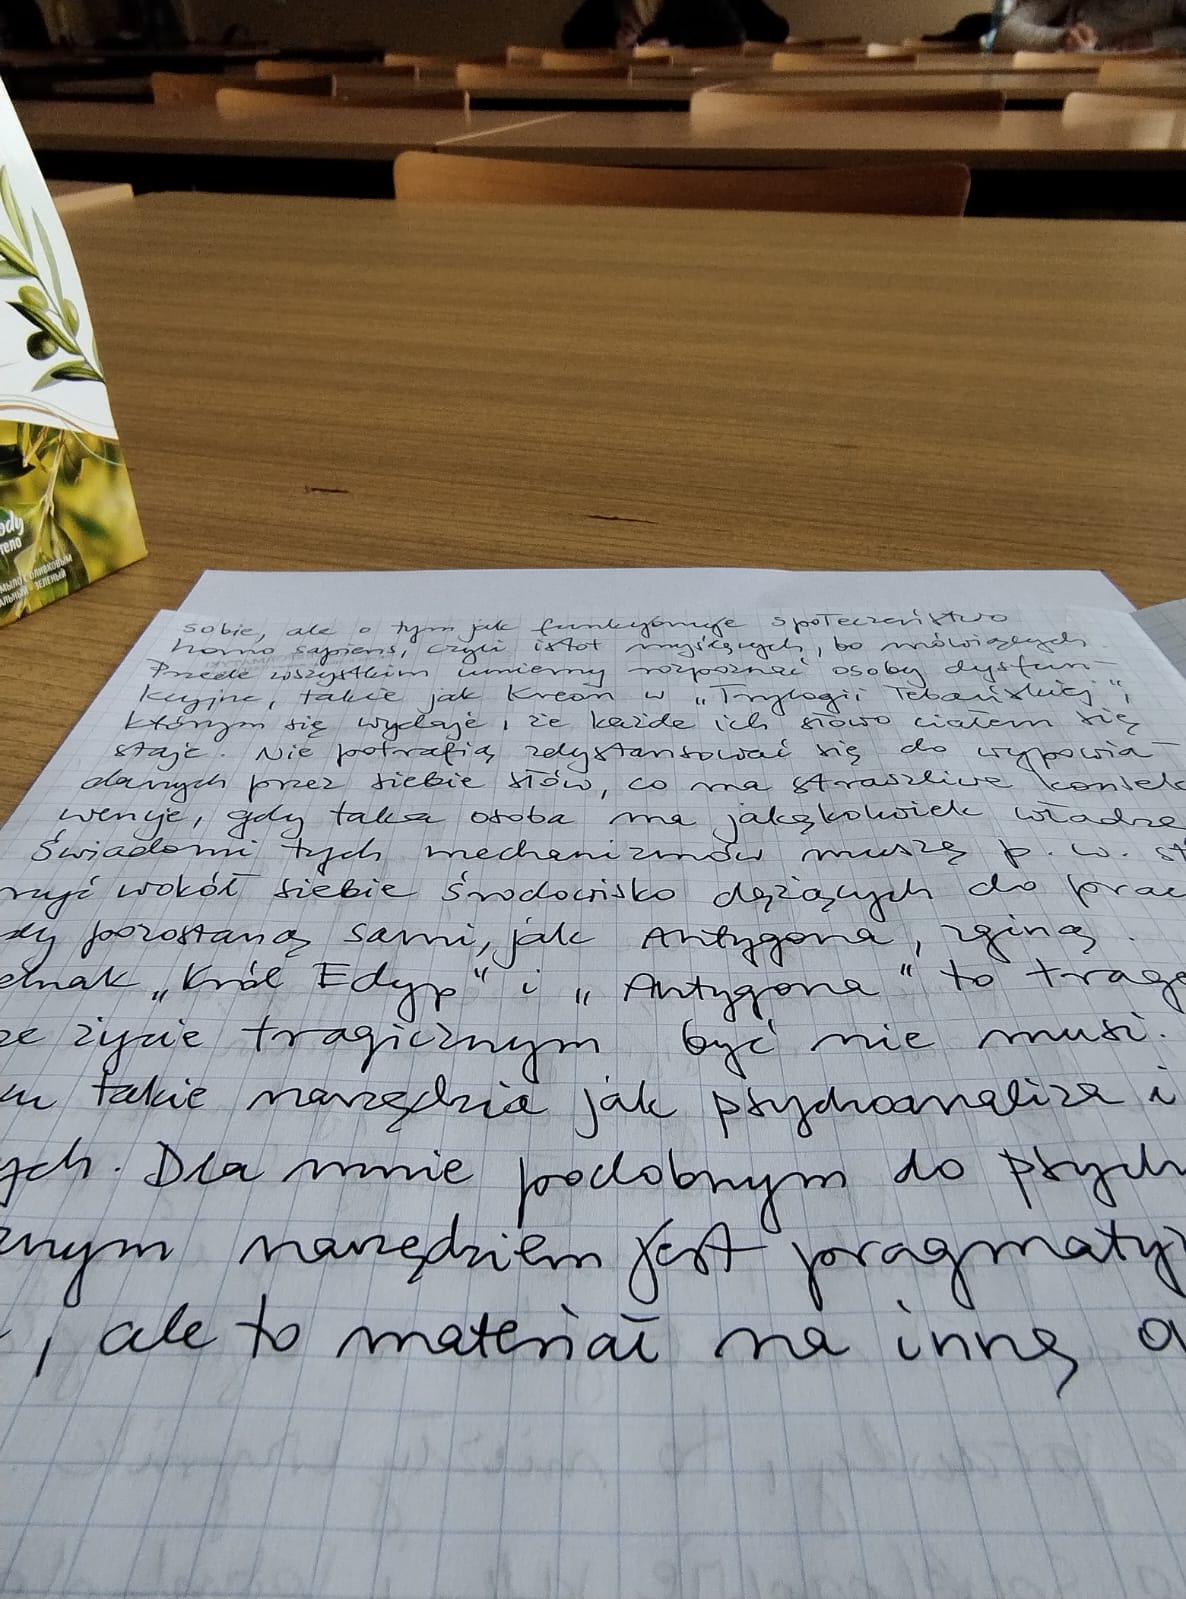 ody
тело
мыло с оливковым
зеленый
sobie, ale o tym jak funkcjonuje społeczeństwo
homo sapiens, czyli istot myślących, bo mówiących.
Przede wszystkim umiemy rozpoznać osoby dysfun-
kcyjne, takie jak Kreon w „Trylogii Tebańskiej",
którym się wydaje, że każde ich słowo ciałem się
staje. Nie potrafią zdystansować się do wypowia-
danych przez siebie słów, co ma straszliwe konsek
wencje, gdy taka osoba ma jakąkolwiek władzę
Świadomi tych mechanizmów muszą p.w. st
rzyć wokół siebie środowisko dążących do praw
dy pozostaną sami, jak Antygona, zginą.
ednak „Król Edyp" i „Antygona" to trage
że życie tragicznym być nie musi.
m takie narzędzia jak psychoanaliza i
ych. Dla mnie podobnym do psych
znym narzędziem jest pragmaty
, ale to materiał na inną o